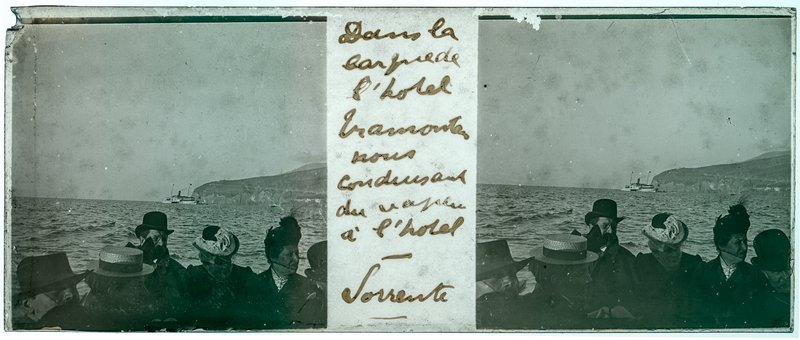 Dans la
barque de
l'hotel
Tramontan
nous
conduisant
du vapeur
à l'hotel
Sorrente